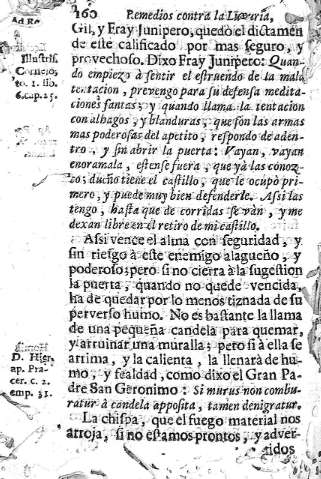 160 Remedios contra la Luxuria,
Gil, y Fray Junipero, quedò el dictamen
de este calificado por mas seguro, y
provechoso. Dixo Fray Junipero: Quan-
do empiezo à sentir el estruendo de la mala
tentacion, prevengo para su defensa medita-
ciones santas; y quando llama la tentacion
con alhagos, y blanduras, que son las armas
mas poderosas del apetito, respondo de aden-
tro, y sin abrir la puerta: Vayan, vayan
enoramala, estense fuera, que yà las conoz-
co; dueño tiene el castillo, que le ocupò pri-
mero, y puede muy bien defenderle. Assi las
tengo, hasta que de corridas se vàn, y me
dexan libre en el retiro de mi castillo.
Assi vence el alma con seguridad, y
sin riesgo à este enemigo alagueño, y
poderoso; pero si no cierra à la sugestion
la puerta, quando no quede vencida,
ha de quedar por lo menos tiznada de su
perverso humo. No es bastante la llama
de una pequeña candela para quemar,
y arruinar una muralla; pero si à ella se
arrima, y la calienta, la llenarà de hu-
mo, y fealdad, como dixo el Gran Pa-
dre San Geronimo: Si murus non combu-
ratur à candela apposita, tamen denigratur.
La chispa, que el fuego material nos
arroja, si no estamos prontos, y adver-
tidos
Ad Ro
Illustris.
Cornejo,
to. 1. lib.
6. cap. 15.
D. Hier.
ap. Pra-
cer. c. 2.
emp. 31.